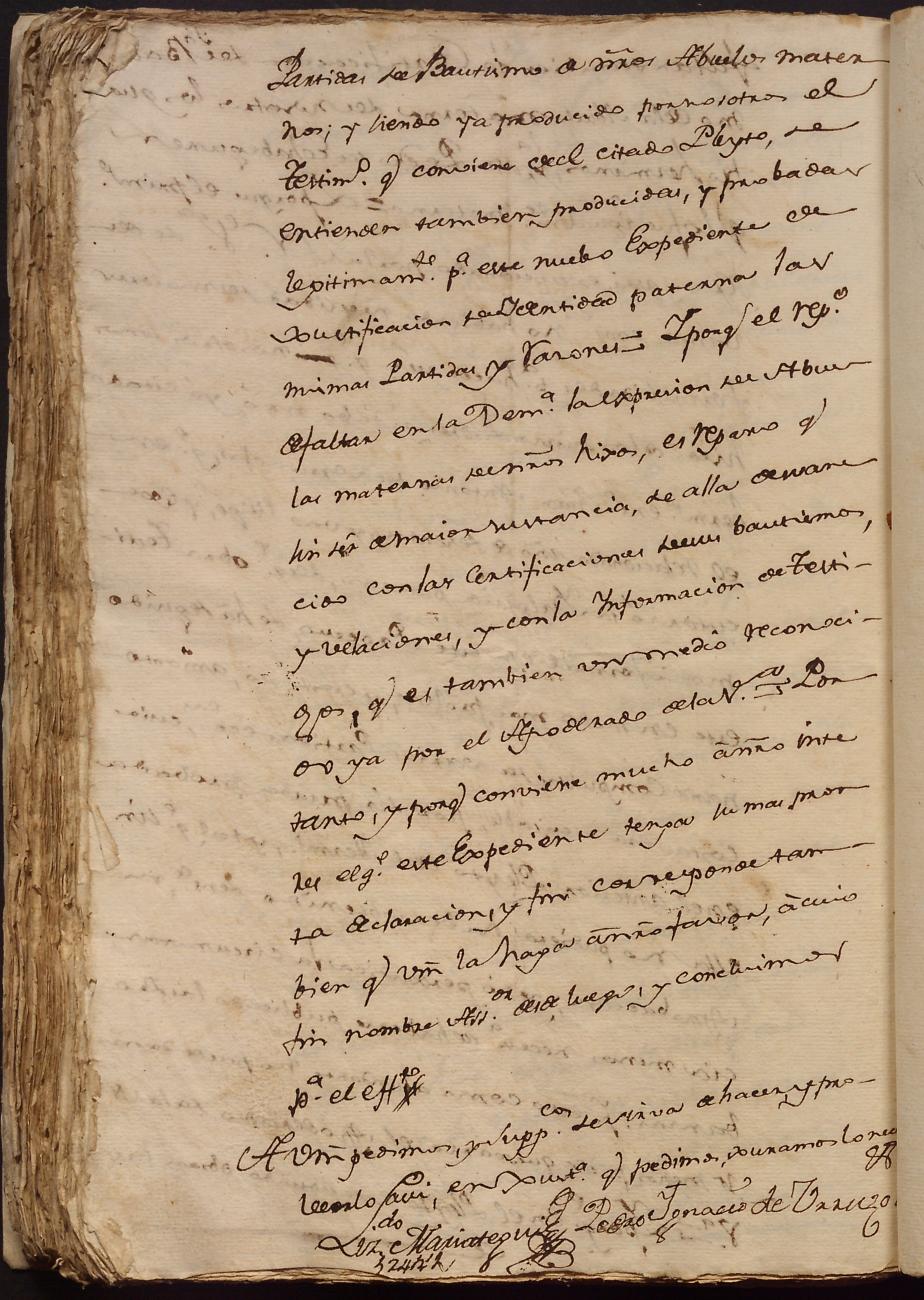 Partidas de Bautismo de ñros Abuelos mater
nos; y siendo ya producido por nosotros el
Testimº. q̃ conviene decl citado Pleyto, se
entienden tambien producidas, y probadas
legitimamte. pª este nuebo Expediente de
Justificacion de Identidad paterna las
mismas Partidas y Varones= Y porq̃ el repº.
de faltar en la Demª. la expresion de Abue
las maternas de ñros hixos, es reparo q̃
sin ser de maior sustancia, se alla desvane
cido con las Certificaciones de sus bautismos,
y velaciones, y con la Informacion de Testi-
gos, q̃ es tambien un medio reconoci-
do ya por el Apoderado de la Por
tanto, y porq̃ conviene mucho a ñro inte
res el q̃ este Expediente tenga su mas pron
ta declaracion, y fin corresponde tam
bien q̃ Vm̃ la haga a ñro favor, à cuio
fin nombre Assor. desde luego, y concluimos
pª. el effto
A Vm̃ pedimos, y suppcos. se sirva de hacer, y pro-
veerlo assi, en Justª. q̃ pedimos, Juramos lo neco
Lizdo. Mariategui Pedro Ignacio de Urruzo